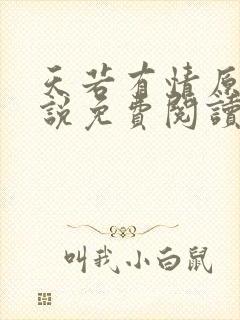 天若有情原
說免費閱讀
叫我小白鼠